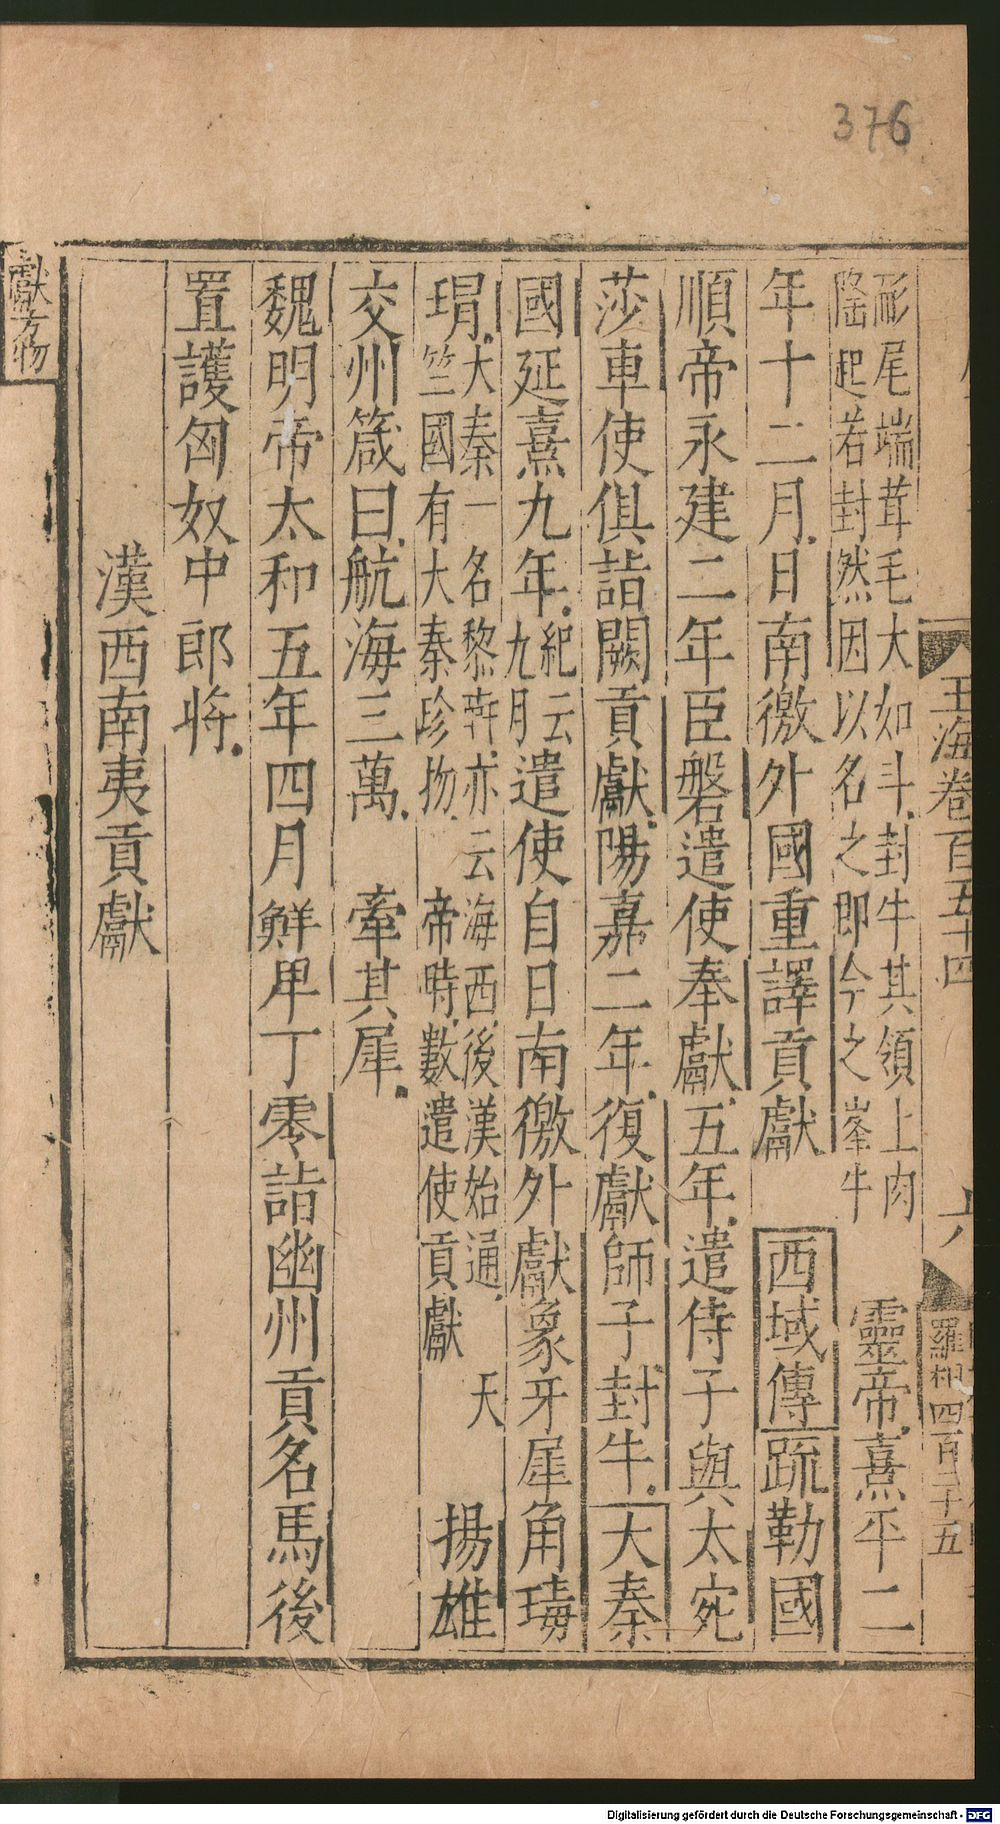 376
玉海卷百五十四 六 羅相四百二十五
耏尾端茸毛大如斗封牛其領上肉
隆起若封然因以名之即今之峯牛
靈帝熹平二
年十二月日南徼外國重譯貢獻 西域傳䟽勒國
順帝永建二年臣磐遣使奉獻五年遣侍子與太宛
莎車使俱詣闕貢獻陽嘉二年復獻師子封牛 大秦
國延熹九年
紀云
九月
遣使自日南徼外獻象牙犀角瑇
瑁
大秦一名黎亦云海西後漢始通 天
竺國有大秦珍物 帝時數遣使貢獻
揚雄
交州箴曰航海三萬 牽其犀
魏明帝太和五年四月鮮卑丁零詣幽州貢名馬後
置護匈奴中郎將
漢西南夷貢獻
獻方物
Digitalisierung gefördert durch die Deutsche Forschungsgemeinschaft - DFG